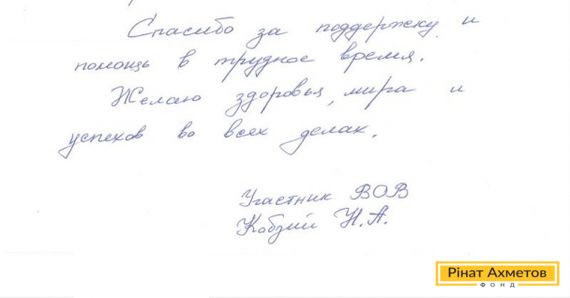 Спасибо за поддержку и
помощь в трудное время.
Желаю здоровья, мира и
успехов во всех делах.
Участник ВОВ
Кобзий Н.А.
Рінат Ахметов
ФОНД